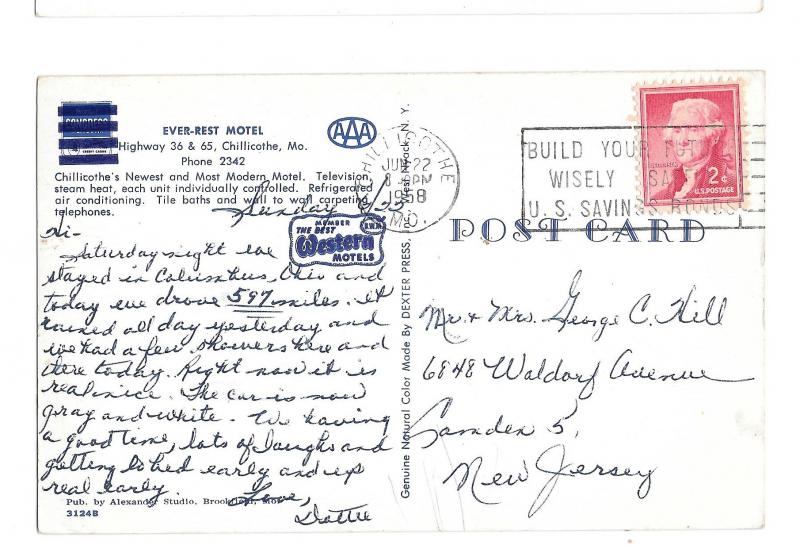 CONGRESS
EVER-REST MOTEL
Highway 36 & 65, Chillicothe, Mo.
Phone 2342
Chillicothe's Newest and Most Modern Motel. Television,
steam heat, each unit individually controlled. Refrigerated
air conditioning. Tile baths and wall to wall carpeting,
telephones.
AAA
MEMBER
THE BEST
Western
MOTELS
Sunday 6/22
Hi-
Saturday night we
stayed in Columbus, Ohio and
today we drove 597 miles. it
rained all day yesterday and
we had a few showers here and
there today. Right now it is
real nice. The car is now
gray and white. We having
a good time, lots of laughs and
getting to bed early and up
real early.
Love,
Dottie
Pub. by Alexander Studio, Brookfield, Mo.
3124B
Genuine Natural Color Made By DEXTER PRESS, West Nyack, N. Y.
CHILLICOTHE
JUN 22
8 PM
1958
MO.
BUILD YOUR FUTURE
WISELY SAFELY
U. S. SAVINGS BONDS
2¢
U.S. POSTAGE
POST CARD
Mr & Mrs. George C. Hill
6848 Waldorf Avenue
Camden 5,
New Jersey